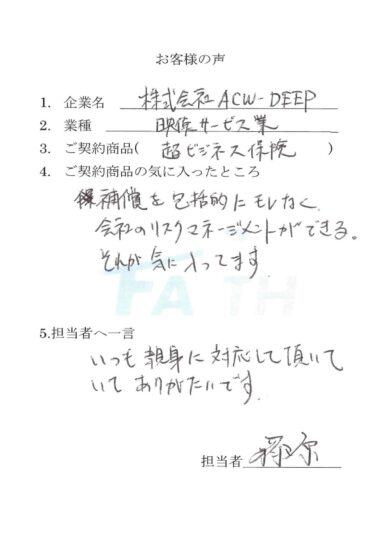 お客様の声
1. 企業名 株式会社ACW-DEEP
2. 業種 映像サービス業
3. ご契約商品( 超ビジネス保険 )
4. ご契約商品の気に入ったところ
補償を包括的にモレなく
会社のリスクマネージメントができる。
それが気に入ってます
FAITH
5.担当者へ一言
いつも親身に対応して頂いて
いてありがたいです。
担当者